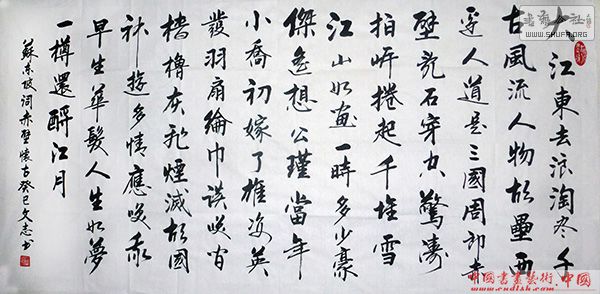 大江東去浪淘尽千
古風流人物故壘西
邊人道是三國周郎赤
壁亂石穿空驚濤
拍岸捲起千堆雪
江山如畫一時多少豪
傑遙想公瑾當年
小喬初嫁了雄姿英
發羽扇綸巾談笑間
檣櫓灰飛煙滅故國
神遊多情應笑我
早生華髮人生如夢
一樽還酹江月
蘇東坡詞赤壁懷古癸巳文志书
WWW.SHUFA.ORG
中國書畫藝術.中國